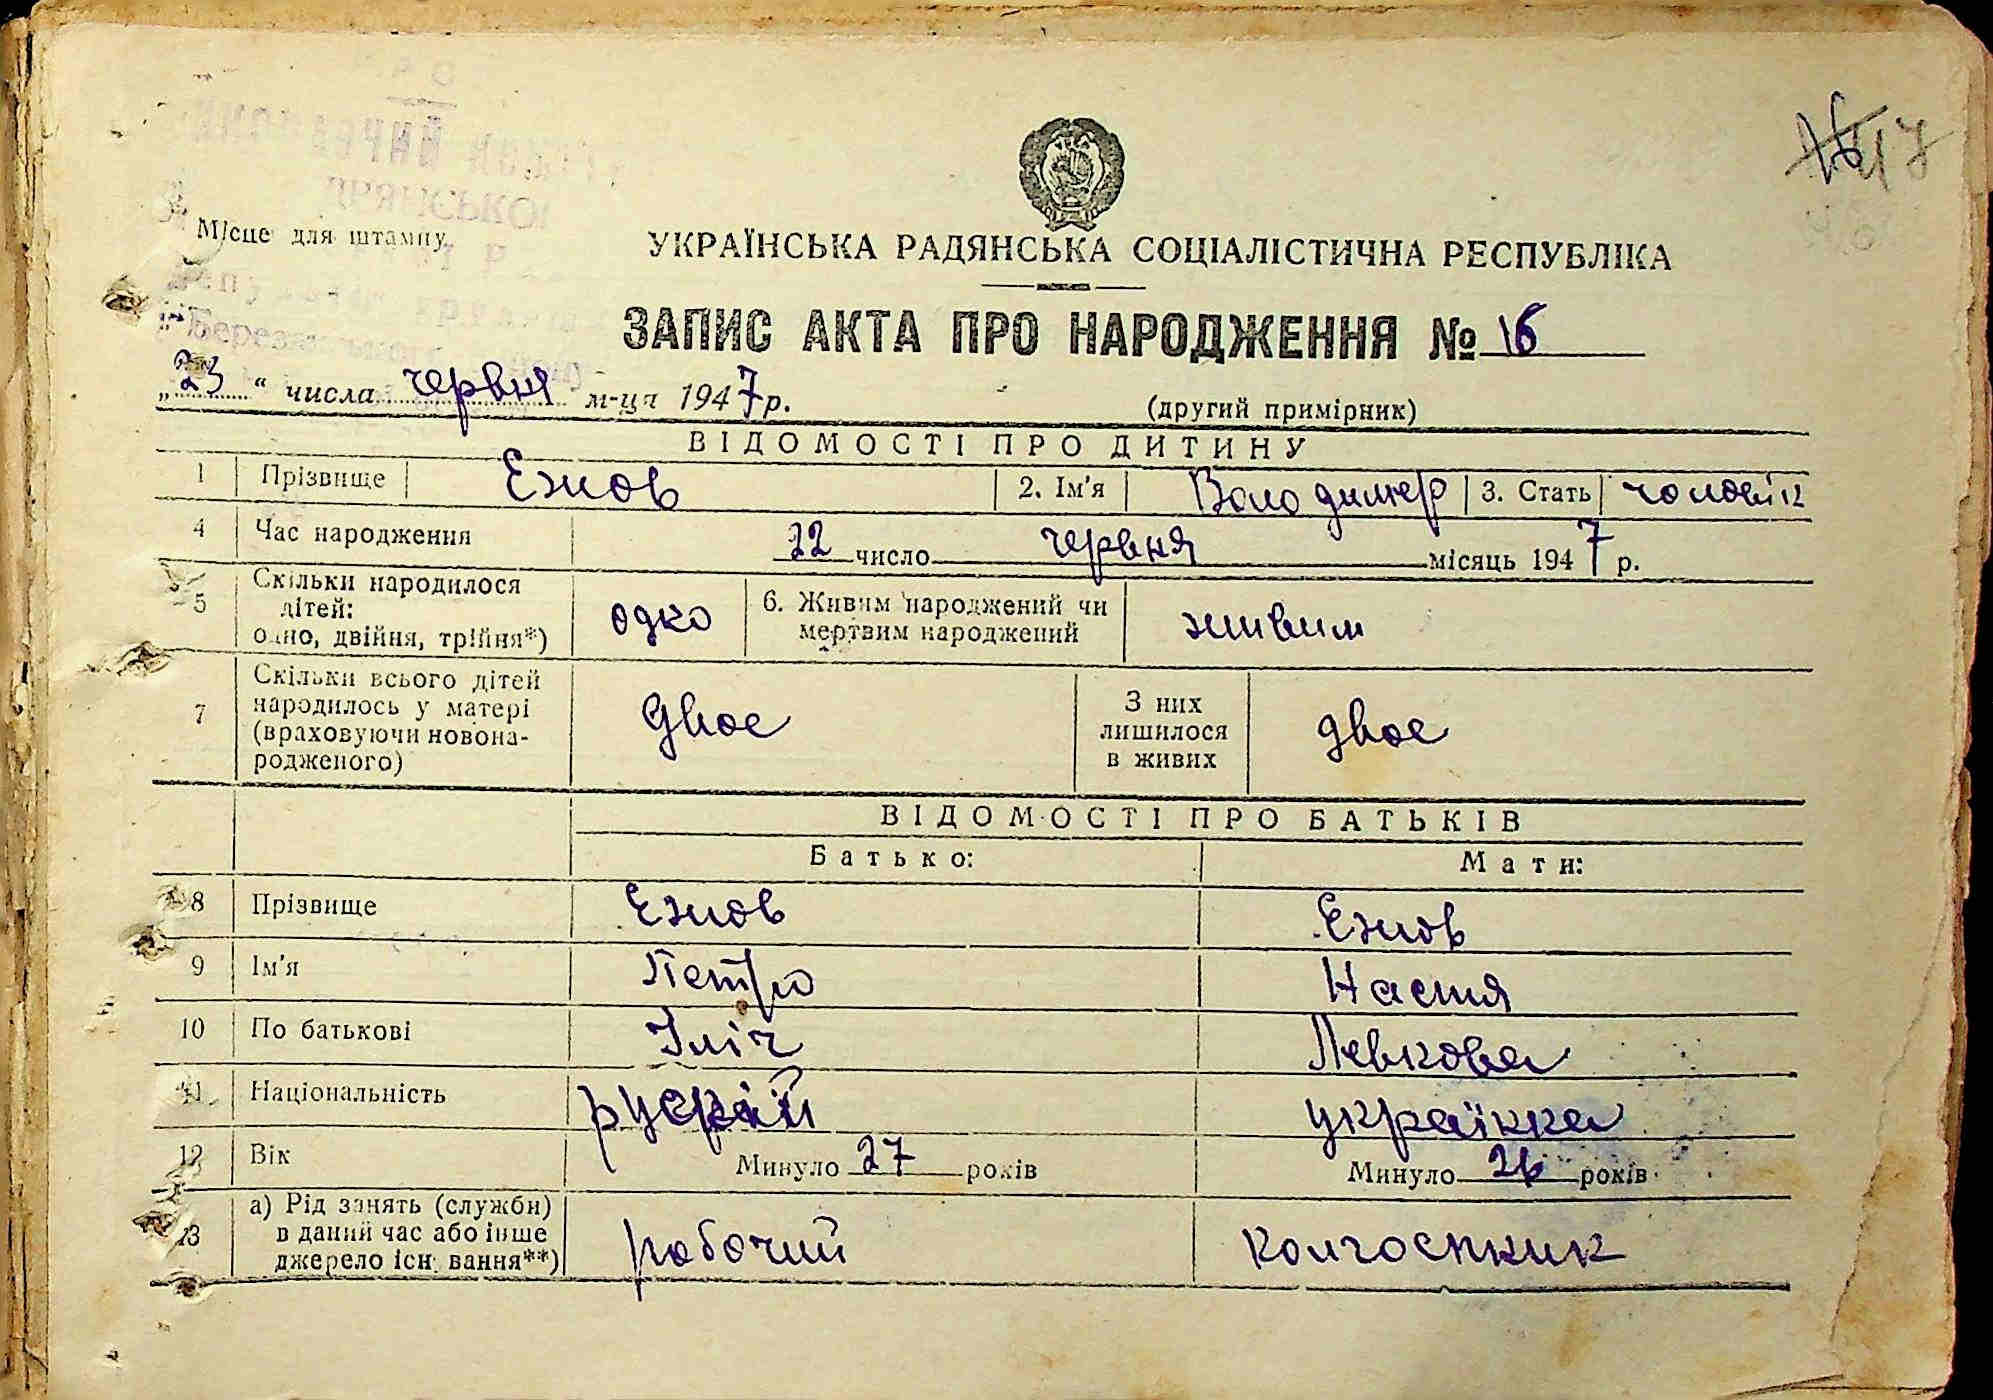 17
Місце для штампу
УКРАЇНСЬКА РАДЯНСЬКА СОЦІАЛІСТИЧНА РЕСПУБЛІКА
ЗАПИС АКТА ПРО НАРОДЖЕННЯ № 16
„23“ числа червня м-ця 1947 р.
(другий примірник)
ВІДОМОСТІ ПРО ДИТИНУ
1 Прізвище Ежов 2. Ім'я Володимер 3. Стать чоловік
4 Час народження 22 число червня місяць 1947 р.
5 Скільки народилося
дітей:
одно, двійня, трійня*) одно 6. Живим народжений чи
мертвим народжений живим
7 Скільки всього дітей
народилось у матері
(враховуючи новона-
родженого) двое З них
лишилося
в живих двое
ВІДОМОСТІ ПРО БАТЬКІВ
Батько: Мати:
8 Прізвище Ежов Ежов
9 Ім'я Петро Настя
10 По батькові Іліч Левкова
11 Національність руский українка
12 Вік Минуло 27 років Минуло 26 років
13 а) Рід занять (служби)
в даний час або інше
джерело існування**) робочий колгоспник